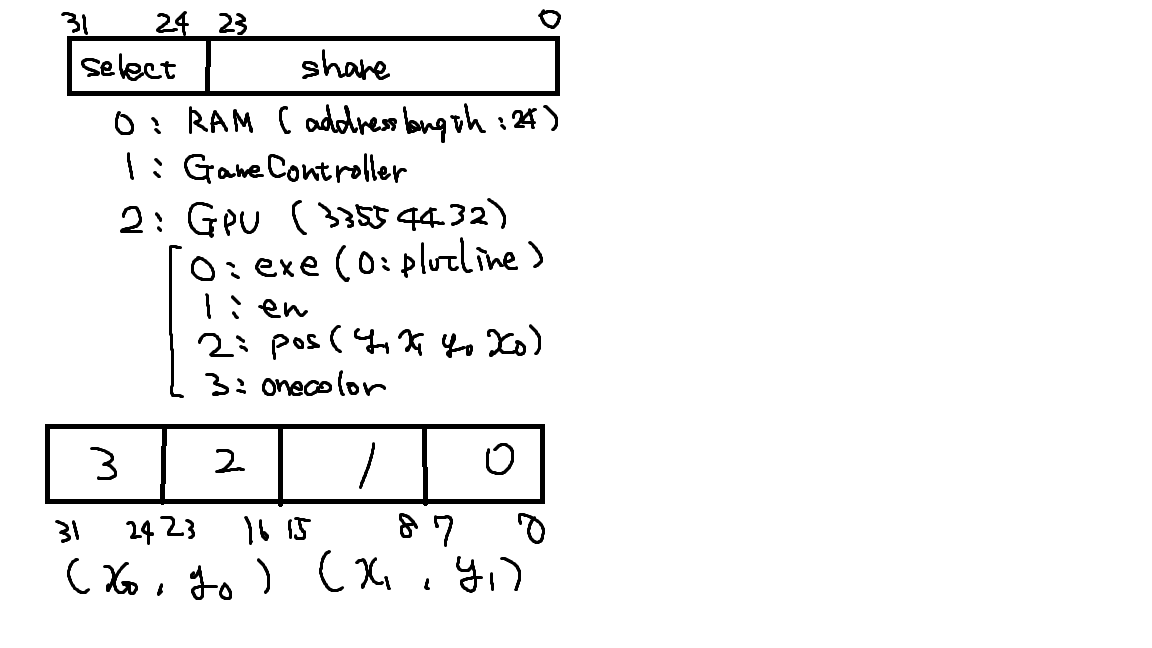 31 24 23 0
select share
0: RAM (addresslength: 24)
1: GameController
2: GPU (33554432)
0: exe (0: plotline)
1: en
2: pos (y₁ x₁ y₀ x₀)
3: onecolor
3 2 1 0
31 24 23 16 15 8 7 0
(x₀, y₀) (x₁, y₁)